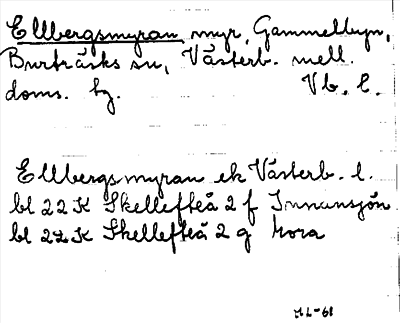 Ellbergsmyran, myr, Gammelbyn,
Burträsks sn, Västerb. mell.
doms. hg. Vb. l.
Ellbergsmyran ek Västerb. l.
bl 22 K Skellefteå 2 f Innansjön
bl 22 K Skellefteå 2 g Mora